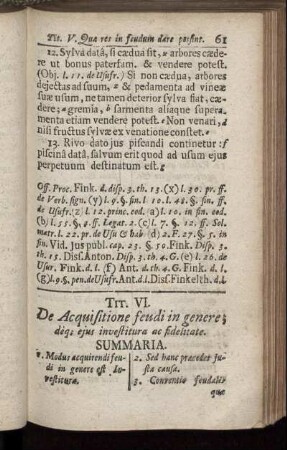 Tit. V. Quæ res in feudum dare possint. 61
12. Sylvâ datâ, si cædua sit, arbores cæde-
re ut bonus paterfam. & vendere potest.
(Obj. l. 11. de Usufr.) Si non cædua, arbores
dejectas ad suum, & pedamenta ad vineæ
suæ usum, ne tamen deterior sylva fiat, cæ-
dere; gremia, sarmenta aliaque super-
menta etiam vendere potest. Non venari,
nisi fructus sylvæ ex venatione constet.
13. Rivo dato jus piscandi continetur:
piscinâ datâ, salvum erit quod ad usum ejus
perpetuum destinatum est.
Off. Proc. Fink. d. disp. 3. th. 13. (x) l. 30. pr. ff.
de Verb. sign. (y) l. 9. §. sin. l. 10. l. 48. §. sin. ff.
de Usufr. z) l. 12. princ. eod. (a) l. 10. in fin. eod.
(b) l. 55. §. 4. ff. Legat. 2. (c) l. 7. §. 12. ff. Sol.
matr. l. 22. pr. de Usu & hab (d) 2. F. 27. §. 5. in
fin. Vid. Jus publ. cap. 23. §. 50. Fink. Disp. 3.
th. 15. Diss. Anton. Disp. 3. th. 4. G. (e) l. 26. de
Usur. Fink. d. l. (f) Ant. d. th. 4. G. Fink. d. l.
(g) l. 9. §. pen. de Usufr. Ant. d. l. Diss. Finkelth. d. l.
TIT. VI.
De Acquisitione feudi in genere;
déq; ejus investitura ac fidelitate.
SUMMARIA.
1. Modus acquirendi feu-
di in genere est In-
vestitura.
2. Sed hanc præcedet ju-
sta causa.
3. Conventio feudalis
quæ